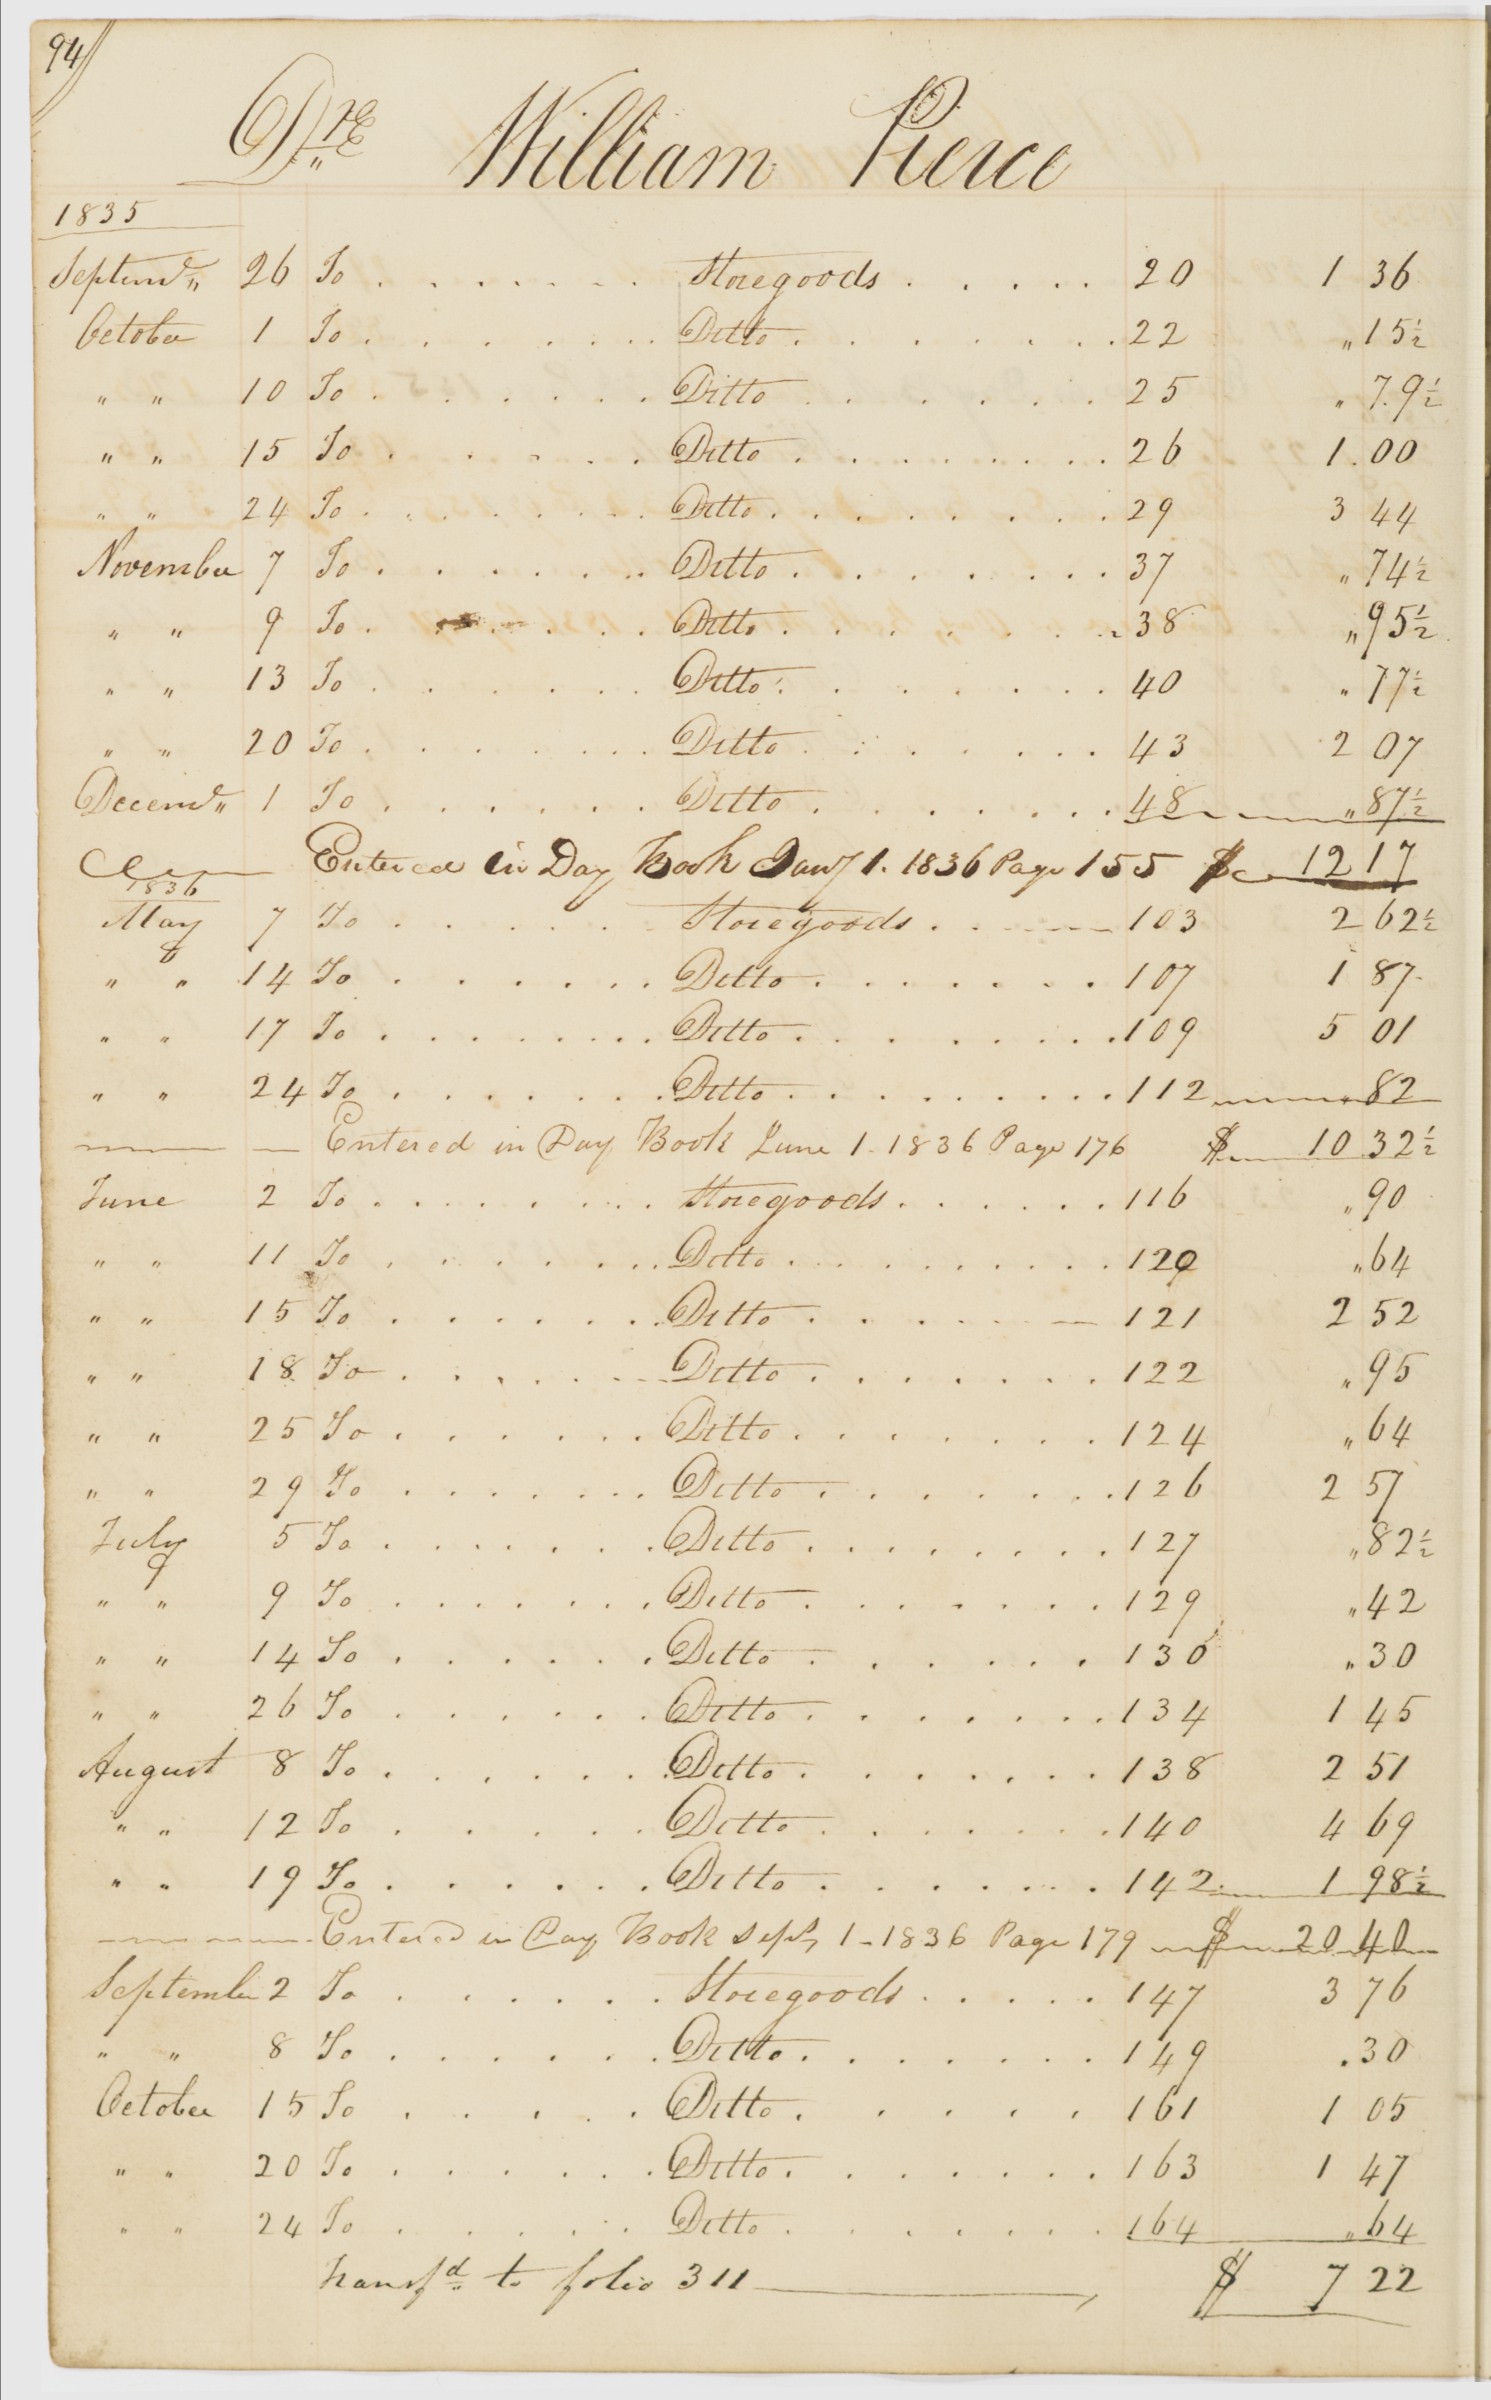 94
Dr. William Pierce
1835
Septemr " 26 To . . . . . . . Storegoods . . . . . 20 1 36
October 1 To . . . . . . . Ditto . . . . . . . 22 " 15½
" " 10 To . . . . . . . Ditto . . . . . . . 25 " 79½
" " 15 To . . . . . . . Ditto . . . . . . . 26 1.00
" " 24 To . . . . . . . Ditto . . . . . . . 29 3 44
November 7 To . . . . . . . Ditto . . . . . . . 37 " 74½
" " 9 To . . . . . . . Ditto . . . . . . . 38 " 95½
" " 13 To . . . . . . . Ditto . . . . . . . 40 " 77½
" " 20 To . . . . . . . Ditto . . . . . . . 43 2 07
Decemr " 1 To . . . . . . . Ditto . . . . . . . 48 " 87½
Entered in Day Book Jany 1. 1836 Page 155 $ 12 17
1836
May 7 To . . . . . Storegoods . . . 103 2 62½
" " 14 To . . . . . . . Ditto . . . . . . . 107 1 87
" " 17 To . . . . . . . Ditto . . . . . . . 109 5 01
" " 24 To . . . . . . . Ditto . . . . . . . 112 " 82
Entered in Day Book June 1. 1836 Page 176 $ 10 32½
June 2 To . . . . . . . Storegoods . . . . . . 116 " 90
" " 11 To . . . . . . . Ditto . . . . . . . 120 " 64
" " 15 To . . . . . . . Ditto . . . . . . . 121 2 52
" " 18 To . . . . . . . Ditto . . . . . . . 122 " 95
" " 25 To . . . . . . . Ditto . . . . . . . 124 " 64
" " 29 To . . . . . . . Ditto . . . . . . . 126 2 57
July 5 To . . . . . . . Ditto . . . . . . . 127 " 82½
" " 9 To . . . . . . . Ditto . . . . . . . 129 " 42
" " 14 To . . . . . . . Ditto . . . . . . . 130 " 30
" " 26 To . . . . . . . Ditto . . . . . . . 134 1 45
August 8 To . . . . . . . Ditto . . . . . . . 138 2 51
" " 12 To . . . . . . . Ditto . . . . . . . 140 4 69
" " 19 To . . . . . . . Ditto . . . . . . . 142 1 98½
Entered in Day Book Sept, 1 - 1836 Page 179 $ 20 40
September 2 To . . . . . . Storegoods . . . . . 147 3 76
" " 8 To . . . . . . . Ditto . . . . . . . 149 . 30
October 15 To . . . . . Ditto . . . . . . 161 1 05
" " 20 To . . . . . . . Ditto . . . . . . . 163 1 47
" " 24 To . . . . . . Ditto . . . . . . . 164 " 64
transfd to folio 311 $ 7 22